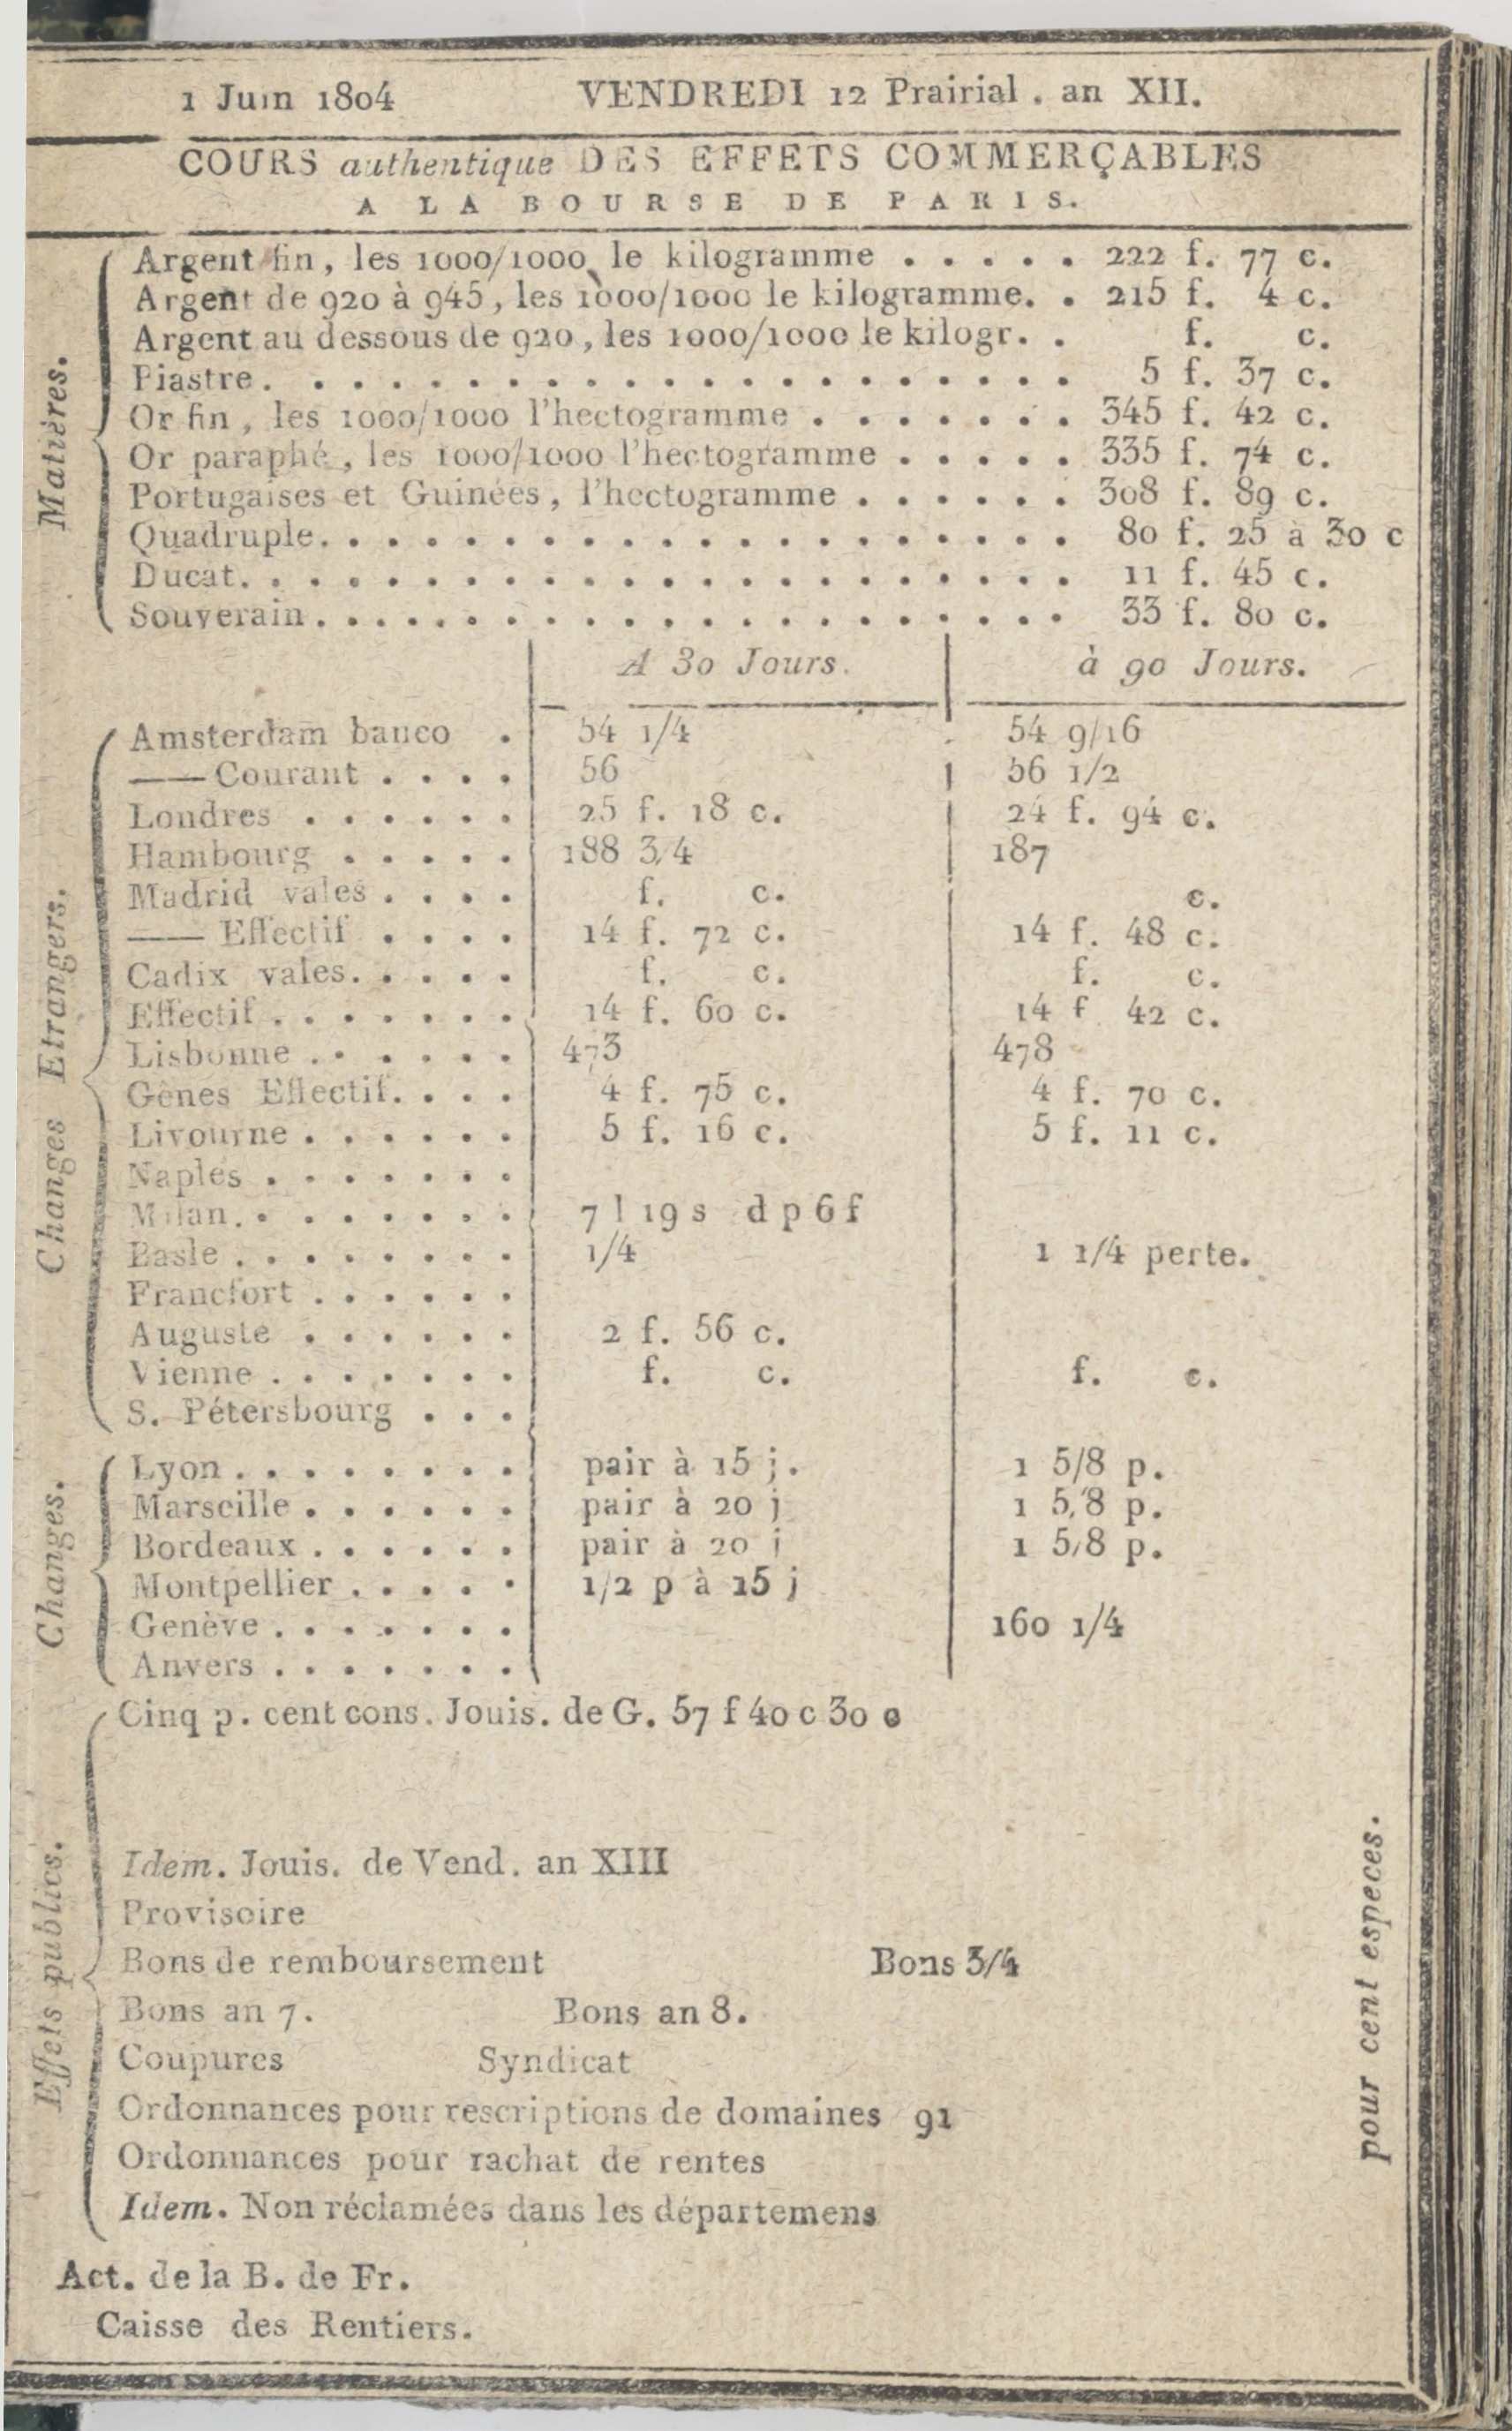 1 Juin 1804 VENDREDI 12 Prairial. an XII.
COURS authentique DES EFFETS COMMERÇABLES
A LA BOURSE DE PARIS.
Matières.
Argent fin, les 1000/1000 le kilogramme . . . . . 222 f. 77 c.
Argent de 920 à 945, les 1000/1000 le kilogramme. . 215 f. 4 c.
Argent au dessous de 920, les 1000/1000 le kilogr. . f. c.
Piastre. . . . . . . . . . . . . . . . . . . . . 5 f. 37 c.
Or fin, les 1000/1000 l'hectogramme . . . . . . . 345 f. 42 c.
Or paraphé, les 1000/1000 l'hectogramme . . . . . 335 f. 74 c.
Portugaises et Guinées, l'hectogramme . . . . . . 308 f. 89 c.
Quadruple. . . . . . . . . . . . . . . . . . . . 80 f. 25 à 30 c
Ducat. . . . . . . . . . . . . . . . . . . . . . 11 f. 45 c.
Souverain. . . . . . . . . . . . . . . . . . . . 33 f. 80 c.
A 30 Jours. à 90 Jours.
Changes Etrangers.
Amsterdam banco . 54 1/4 54 9/16
—— Courant . . . . 56 56 1/2
Londres . . . . . . 25 f. 18 c. 24 f. 94 c.
Hambourg . . . . . 188 3/4 187
Madrid vales . . . . f. c. c.
—— Effectif . . . . 14 f. 72 c. 14 f. 48 c.
Cadix vales. . . . . f. c. f. c.
Effectif . . . . . . . 14 f. 60 c. 14 f 42 c.
Lisbonne . . . . . . 473 478
Gênes Effectif. . . . 4 f. 75 c. 4 f. 70 c.
Livourne . . . . . . 5 f. 16 c. 5 f. 11 c.
Naples . . . . . . .
Milan. . . . . . . . 7 l 19 s d p 6 f
Basle . . . . . . . . 1/4 1 1/4 perte.
Francfort . . . . . .
Auguste . . . . . . 2 f. 56 c.
Vienne . . . . . . . f. c. f. c.
S. Pétersbourg . . .
Changes.
Lyon . . . . . . . . pair à 15 j. 1 5/8 p.
Marseille . . . . . . pair à 20 j 1 5/8 p.
Bordeaux . . . . . . pair à 20 j 1 5/8 p.
Montpellier . . . . . 1/2 p à 15 j
Genève . . . . . . . 160 1/4
Anvers . . . . . . .
Effets publics.
Cinq p. cent cons. Jouis. de G. 57 f 40 c 30 c
Idem. Jouis. de Vend. an XIII
Provisoire
Bons de remboursement Bons 3/4
Bons an 7. Bons an 8.
Coupures Syndicat
Ordonnances pour rescriptions de domaines 91
Ordonnances pour rachat de rentes
Idem. Non réclamées dans les départemens
pour cent especes.
Act. de la B. de Fr.
Caisse des Rentiers.